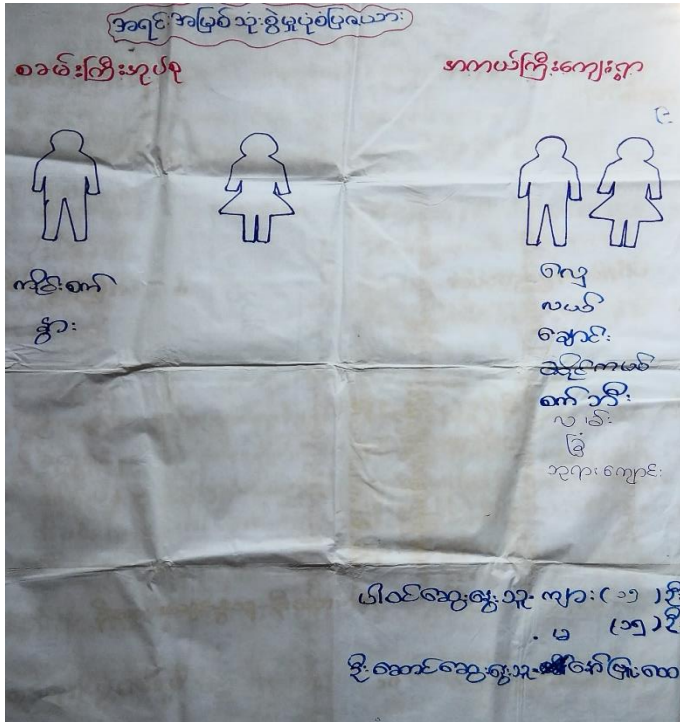 အရင်းအမြစ်သုံးစွဲမှုပုံစံပြဇယား
စခမ်းကြီးအုပ်စု
အကယ်ကြီးကျေးရွာ
ကိုင်းစက်
နွား
လှေ
လယ်
ချောင်း
စက်ဘီး
လမ်း
ခြံ
ဘုရားကျောင်း
ပါဝင်ဆွေးနွေးသူ ကျား (၁၅) ဦး
မ (၁၅) ဦး
ဦးဆောင်ဆွေးနွေးသူ